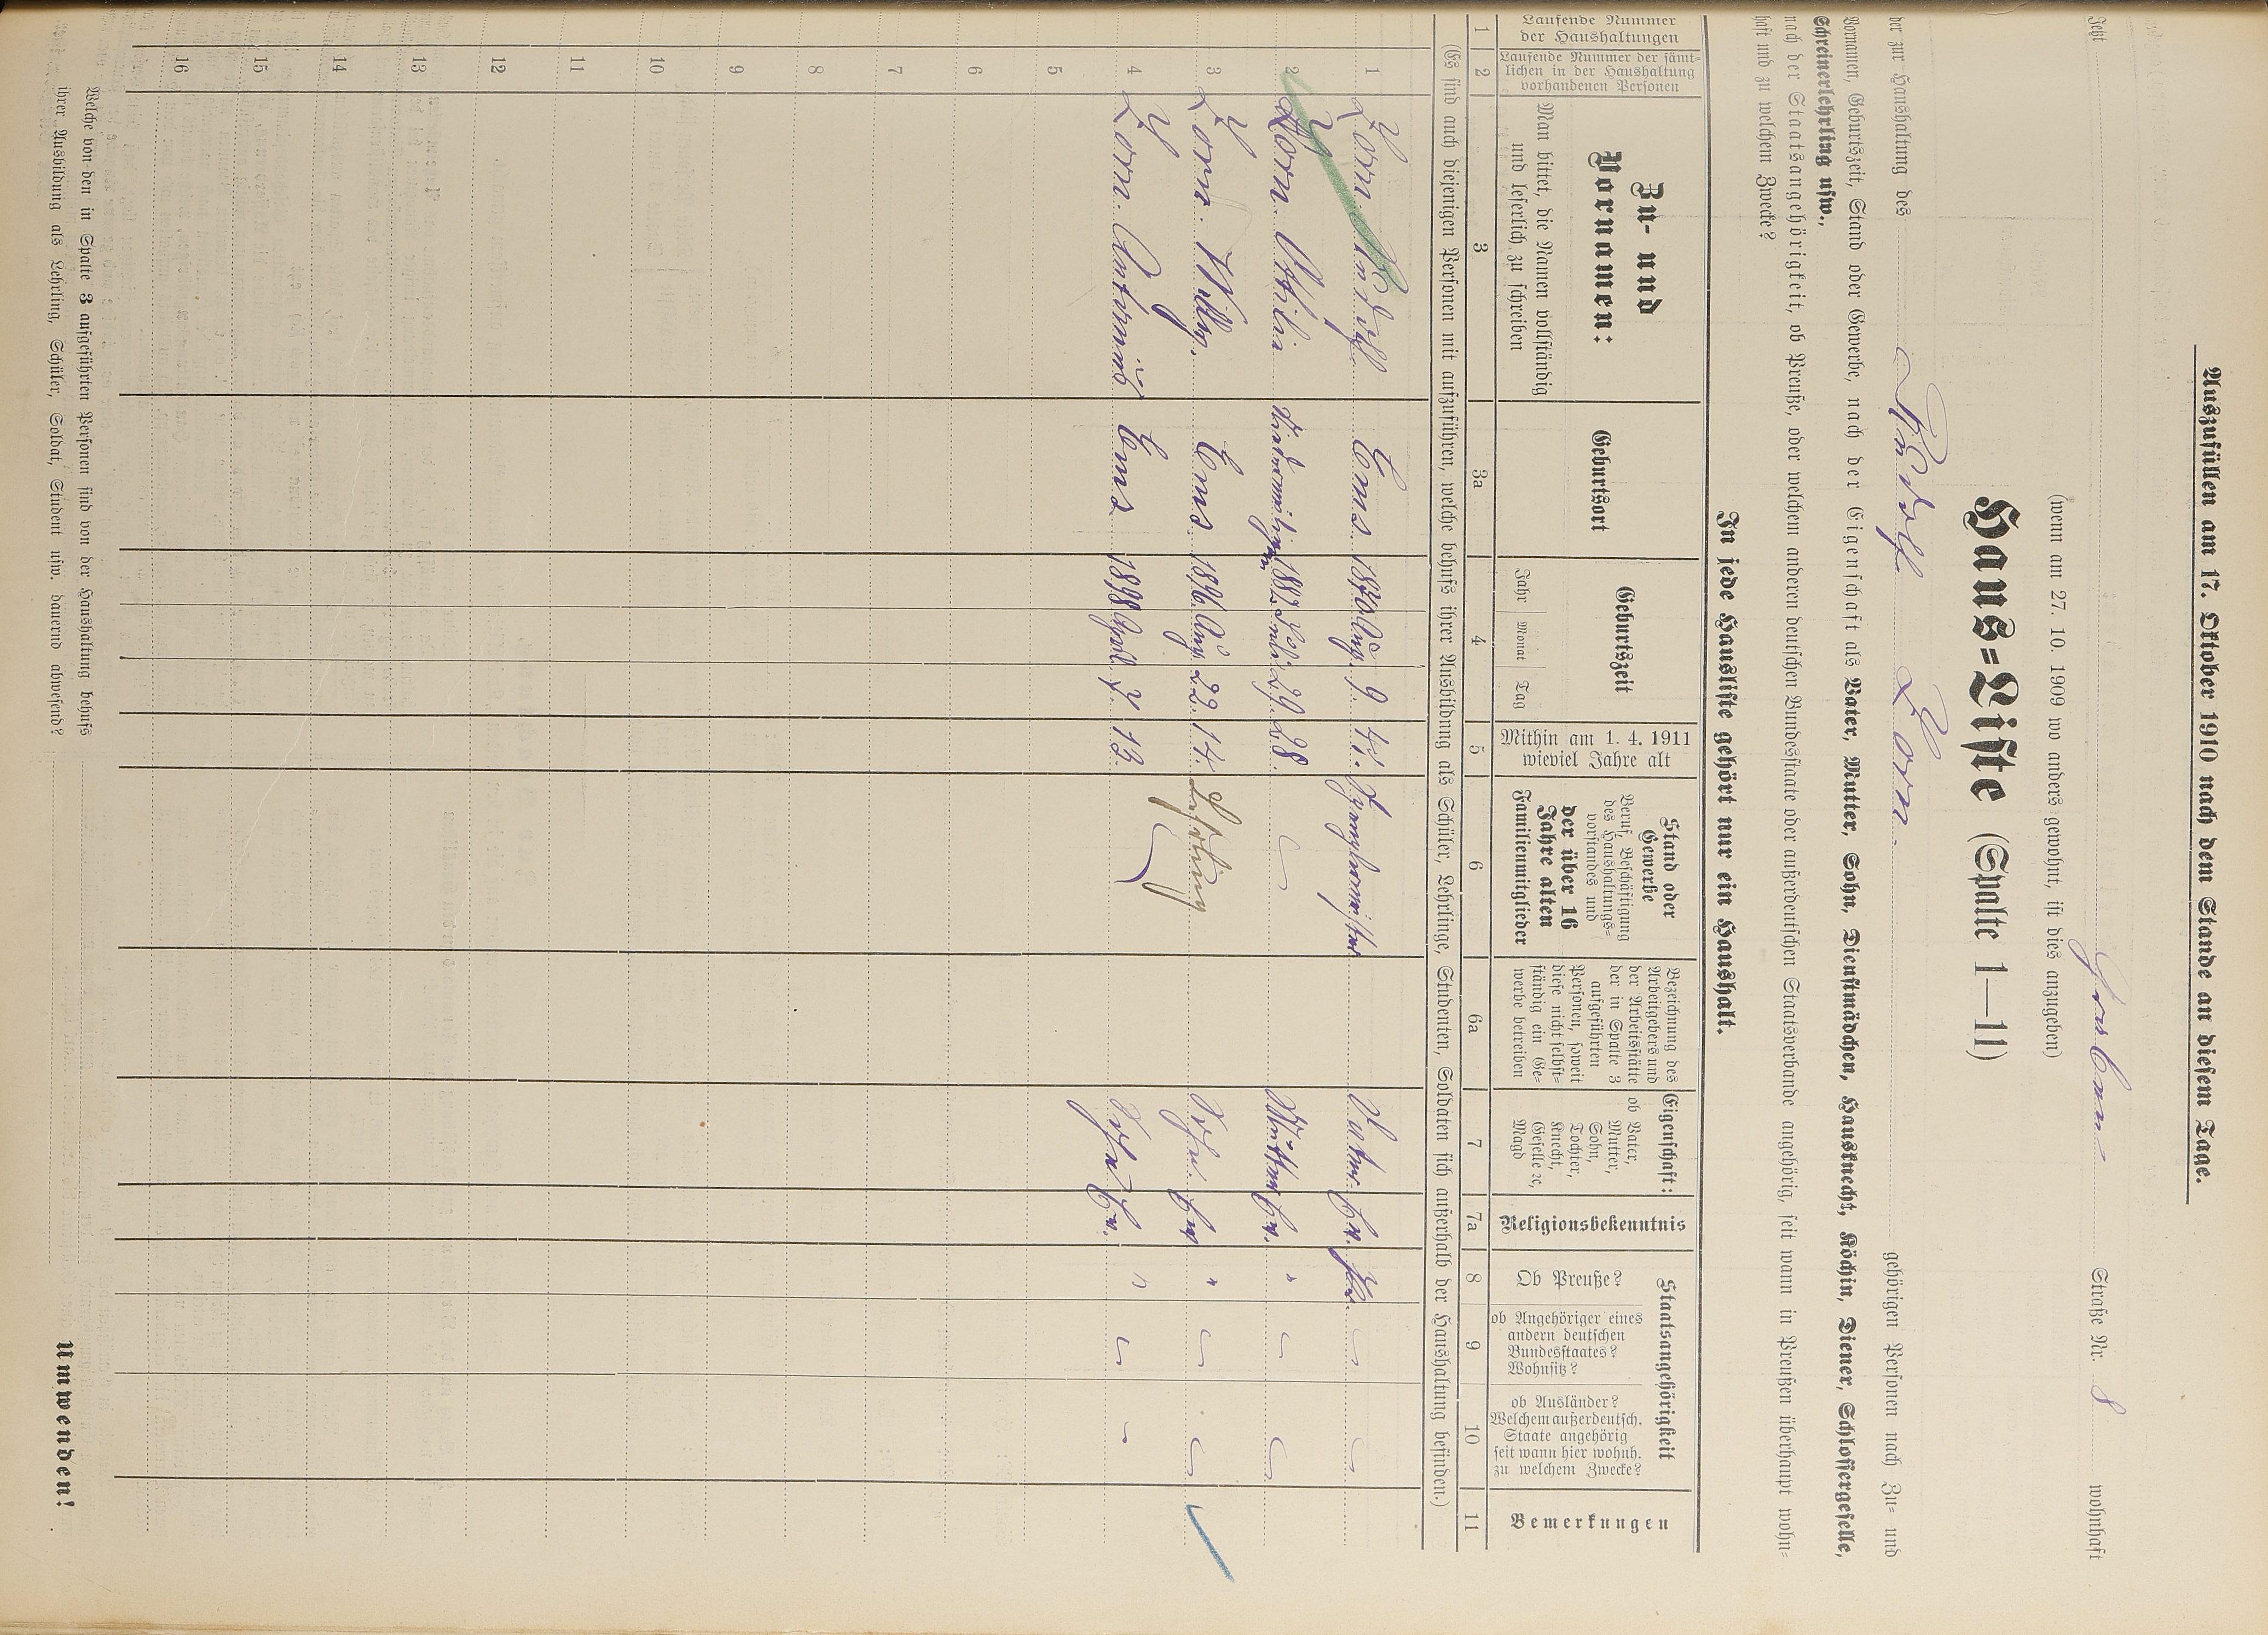 Auszufüllen am 17. Oktober 1910 nach dem Stande an diesem Tage.
Jetzt Straße Nr. 8 wohnhaft
(wenn am 27. 10. 1909 wo anders gewohnt, ist dies anzugeben)
Haus=Liste (Spalte 1—11)
der zur Haushaltung des Rudolf Zorn. gehörigen Personen nach Zu= und
Vornamen, Geburtszeit, Stand oder Gewerbe, nach der Eigenschaft als Vater, Mutter, Sohn, Dienstmädchen, Hausknecht, Köchin, Diener, Schlossergeselle,
Schreinerlehrling usw.,
nach der Staatsangehörigkeit, ob Preuße, oder welchem anderen deutschen Bundesstaate oder außerdeutschen Staatsverbande angehörig, seit wann in Preußen überhaupt wohn=
haft und zu welchem Zwecke?
In jede Hausliste gehört nur ein Haushalt.
Laufende Nummer
der Haushaltungen
Laufende Nummer der sämt=
lichen in der Haushaltung
vorhandenen Personen
Zu- und
Vornamen:
Man bittet, die Namen vollständig
und leserlich zu schreiben
Geburtsort
Geburtszeit
Jahr Monat Tag
Mithin am 1. 4. 1911
wieviel Jahre alt
Stand oder
Gewerbe
Beruf, Beschäftigung
des Haushaltungs=
vorstandes und
der über 16
Jahre alten
Familienmitglieder
Bezeichnung des
Arbeitgebers und
der Arbeitsstätte
der in Spalte 3
aufgeführten
Personen, soweit
diese nicht selbst=
ständig ein Ge=
werbe betreiben
Eigenschaft:
ob Vater,
Mutter,
Sohn,
Tochter,
Knecht,
Geselle ꝛc,
Magd
Religionsbekenntnis
Staatsangehörigkeit
Ob Preuße?
ob Angehöriger eines
andern deutschen
Bundesstaates?
Wohnsitz?
ob Ausländer?
Welchem außerdeutsch.
Staate angehörig
seit wann hier wohnh.
zu welchem Zwecke?
Bemerkungen
1 2 3 3a 4 5 6 6a 7 7a 8 9 10 11
(Es sind auch diejenigen Personen mit aufzuführen, welche behufs ihrer Ausbildung als Schüler, Lehrlinge, Studenten, Soldaten sich außerhalb der Haushaltung befinden.)
1 Zorn Rudolf. Ems. 1870 Aug. 9. 41. Vater. Ev. Pr.
2 Zorn Ottilie 29. 28 Mutter Ev. "
3 Zorn. Willy. Ems. 1896. Aug. 22. 14. Lehrling Sohn. Ev "
4 Zorn. Ems 1898 April 7. 13. Sohn Ev. "
5
6
7
8
9
10
11
12
13
14
15
16
Welche von den in Spalte 3 aufgeführten Personen sind von der Haushaltung behufs
ihrer Ausbildung als Lehrling, Schüler, Soldat, Student usw. dauernd abwesend?
Umwenden!